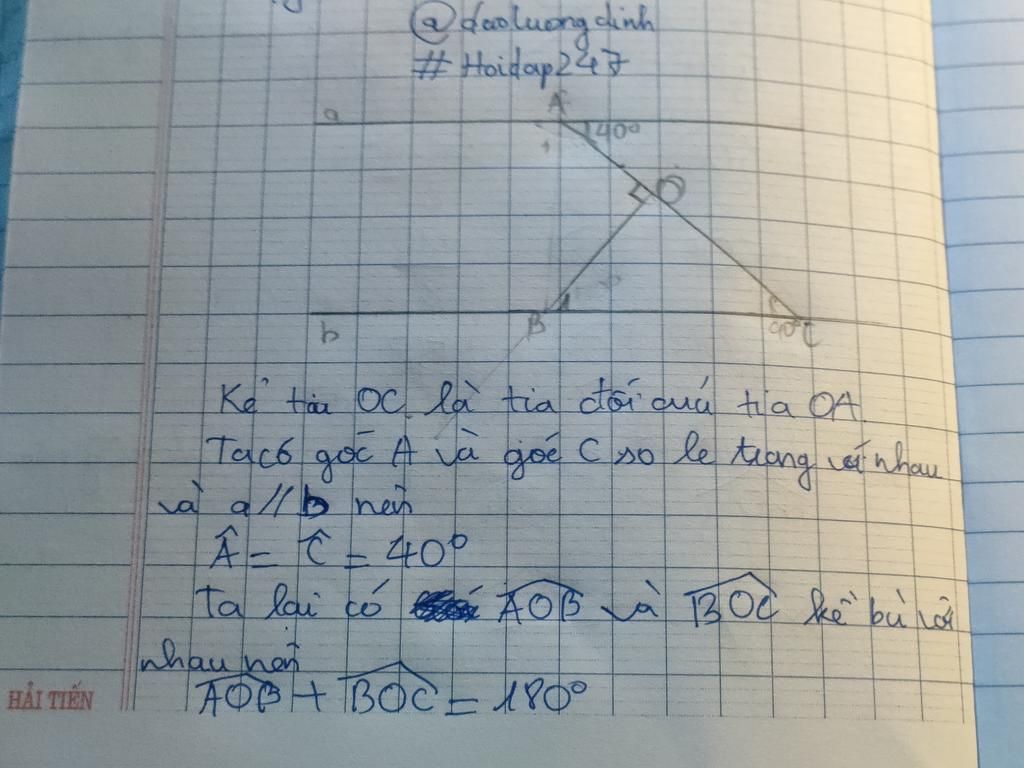 @daoluongdinh
#Hoidap247
a
A
40°
O
b
B
40°
C
Kẻ tia OC là tia đối quá tia OA
Ta có góc A và góc C so le trong với nhau
và a//b nên
Â = Ĉ = 40°
Ta lại có AOB và BOC kề bù với
nhau nên
AOB + BOC = 180°
HẢI TIẾN